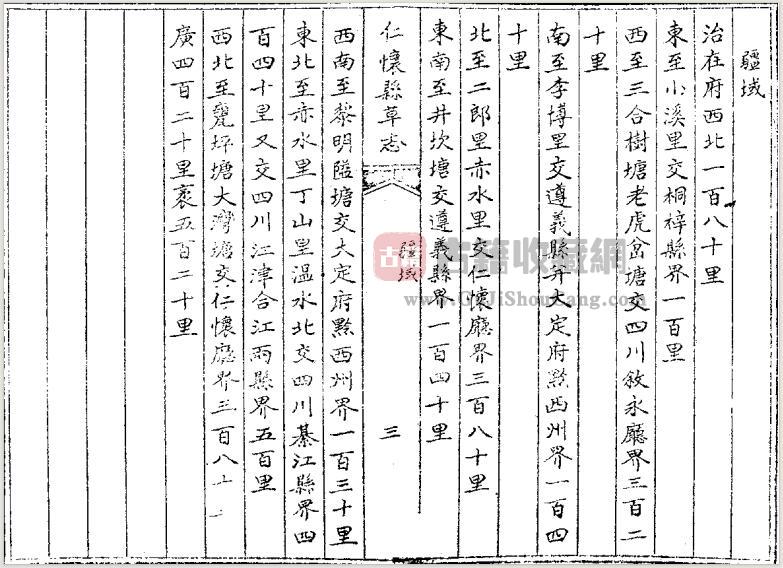 疆域
治在府西北一百八十里
東至小溪里交桐梓縣界一百里
西至三合樹塘老虎岔塘交四川敘永廳界三百二
十里
南至李博里交遵義縣并大定府黔西州界一百四
十里
北至二郎里赤水里交仁懷廳界三百八十里
東南至井坎塘交遵義縣界一百四十里
仁懷縣草志
疆域
三
西南至黎明隘塘交大定府黔西州界一百三十里
東北至赤水里丁山里溫水北交四川綦江縣界四
百四十里又交四川江津合江兩縣界五百里
西北至甕坪塘大灣塘交仁懷廳界三百八十
廣四百二十里袤五百二十里
古籍
古籍收藏網
www.GuJiShouCang.com